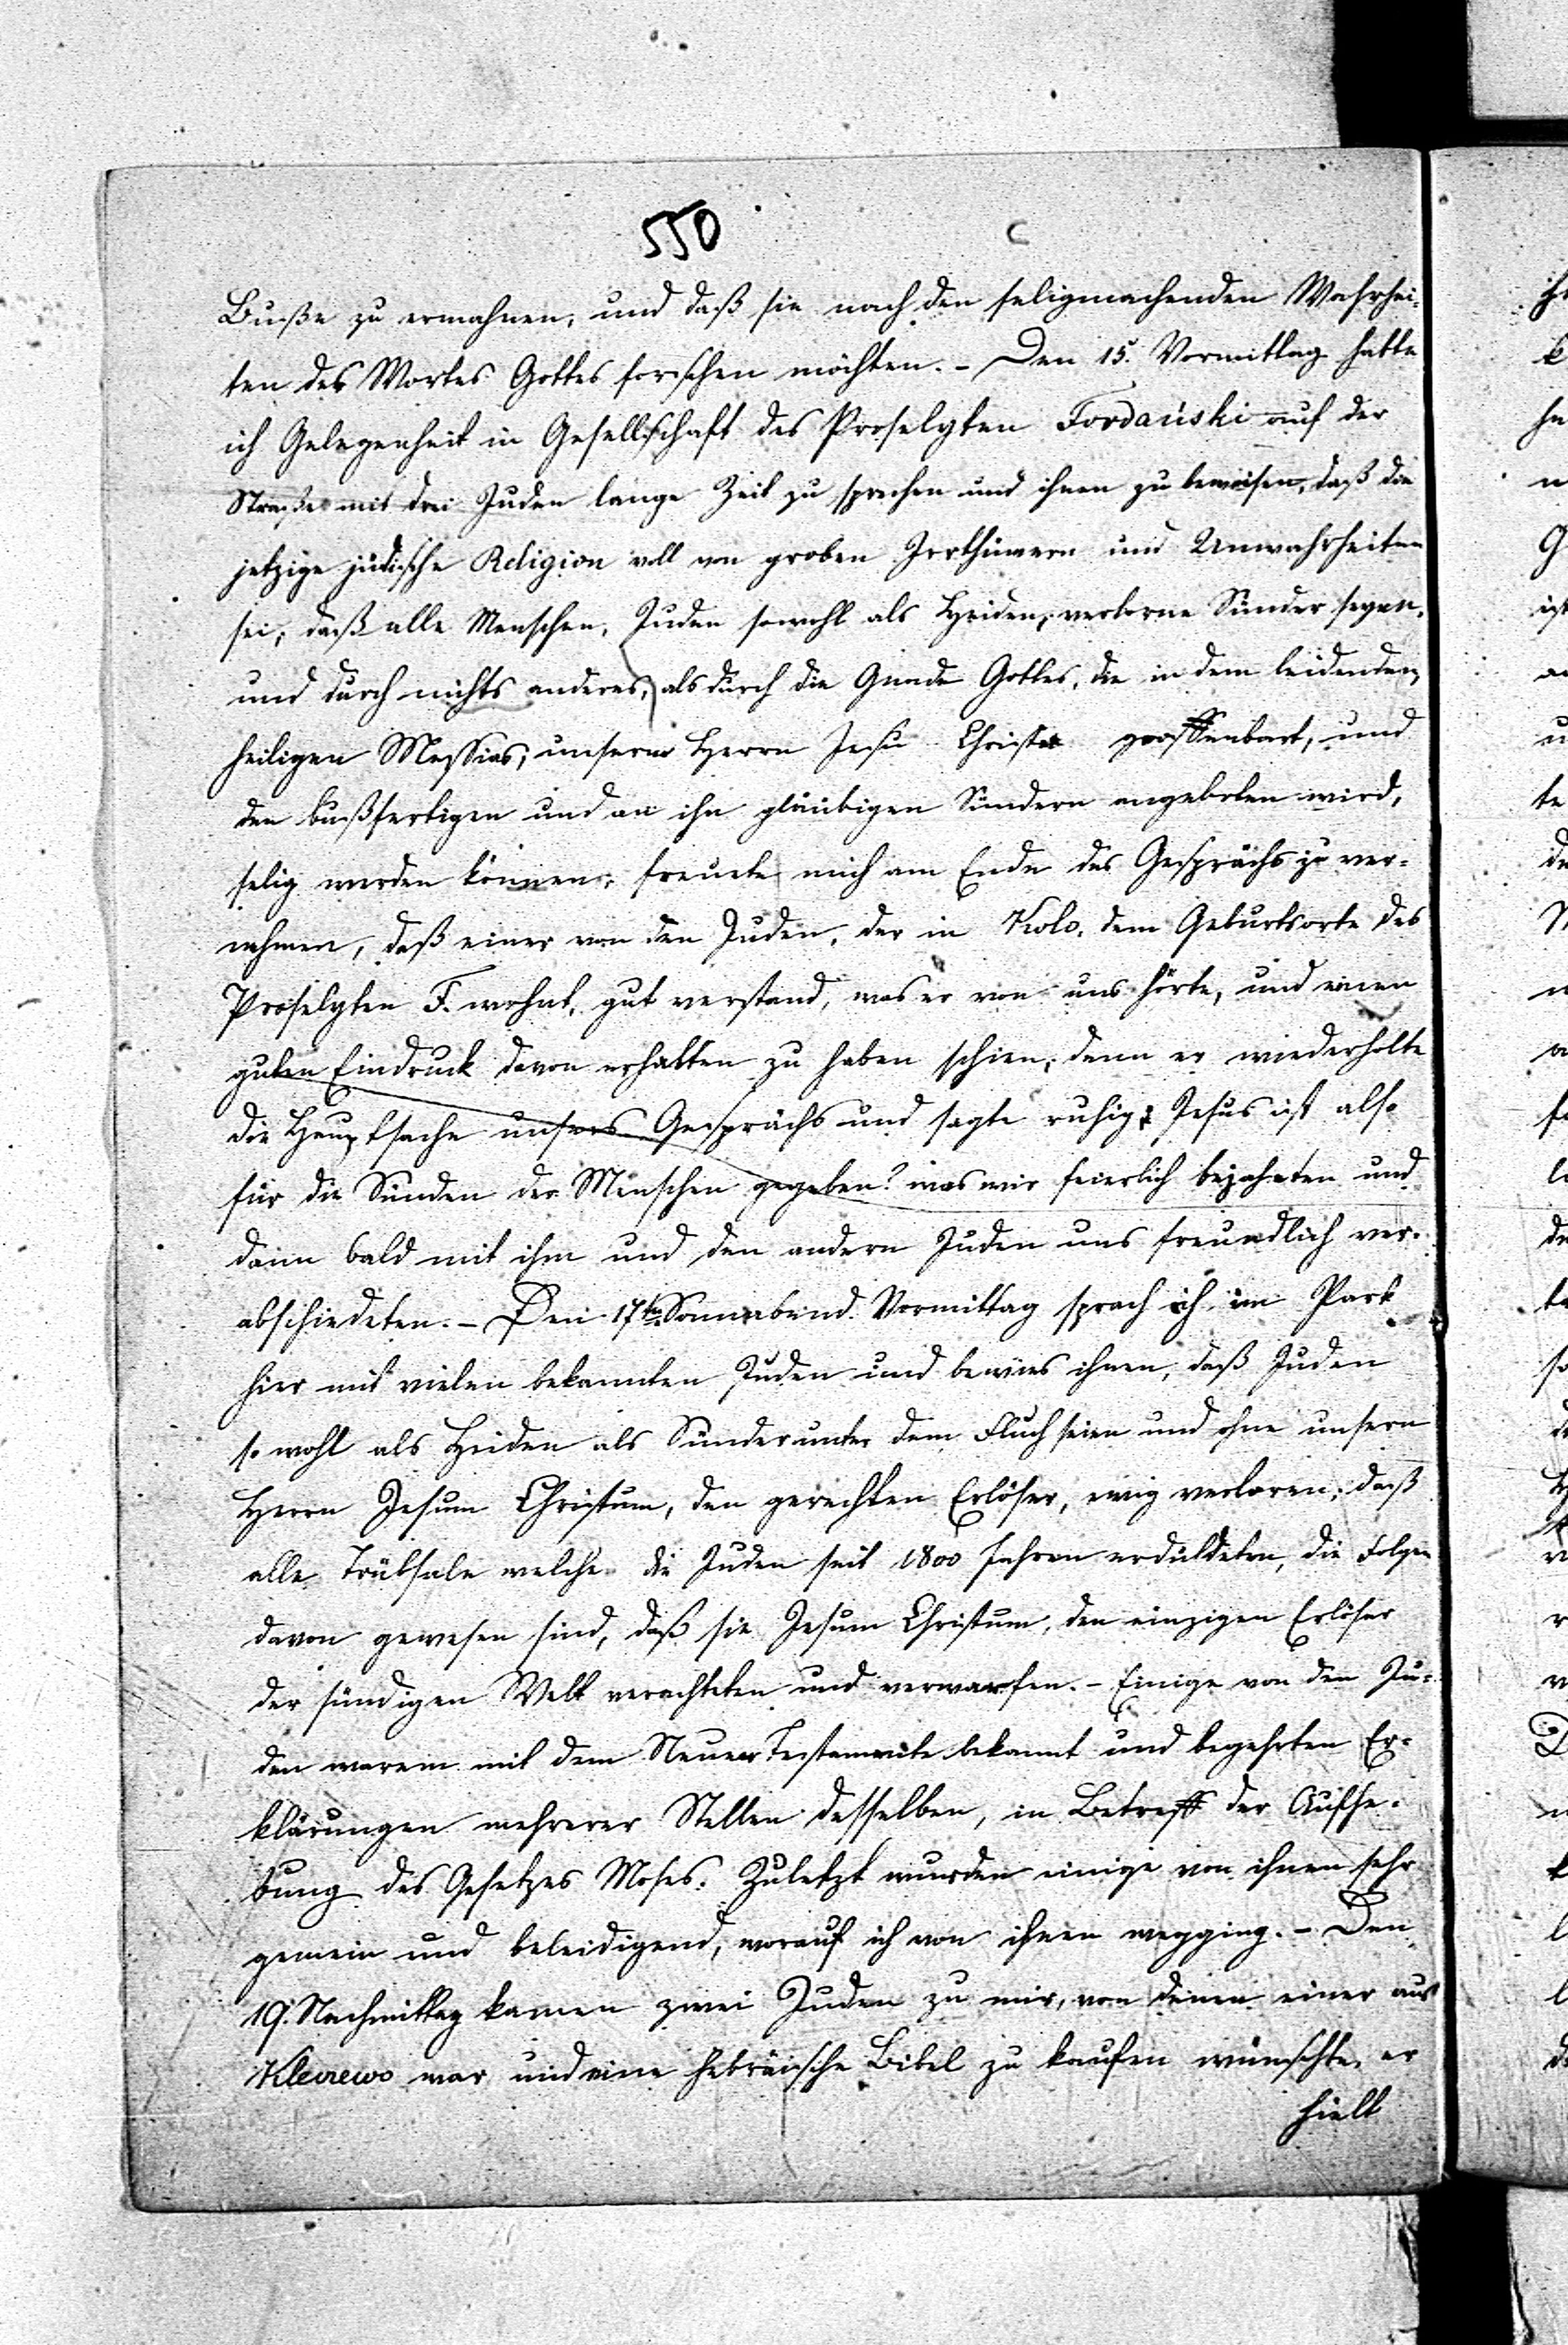 550
Buße zu ermahnen, und daß sie nach den seligmachenden Wahrhei-
ten des Wortes Gottes forschen möchten. - Den 15. Vormittag hatte
ich Gelegenheit in Gesellschaft des Proselyten Fordański auf der
Straße mit drei Juden lange Zeit zu sprechen und ihnen zu beweisen, daß die
jetzige jüdische Religion voll von groben Irrthümern und Unwahrheiten
sei, daß alle Menschen, Juden sowohl als Heiden, verlorne Sünder seyen,
und durch nichts anderes, als durch die Gnade Gottes, die in dem leidenden,
heiligen Messias, unserm Herrn Jesu Christo geoffenbart, und
den bußfertigen und an ihn gläubigen Sündern angeboten wird,
selig werden können; freute mich am Ende des Gesprächs zu ver-
nehmen, daß einer von den Juden, der in Kolo, dem Geburtsorte des
Proselyten F. wohnt, gut verstand, was er von uns hörte, und einen
guten Eindruck davon erhalten zu haben schien; denn er wiederholte
die Hauptsache unsers Gesprächs und sagte ruhig: Jesus ist also
für die Sünden der Menschen gegeben? was wir feierlich bejaheten und
dann bald mit ihm und den andern Juden uns freundlich ver-
abschiedeten. - Den 17ten Sonnabend Vormittag sprach ich im Park
hier mit vielen bekannten Juden und bewies ihnen, daß Juden
so wohl als Heiden als Sünder unter dem Fluch seien und ohne unsern
Herrn Jesum Christum, den gerechten Erlöser, ewig verloren; daß
alle Trübsale welche die Juden seit 1800 Jahren erduldeten, die Folgen
davon gewesen sind, daß sie Jesum Christum, den einzigen Erlöser
der sündigen Welt verachteten und verwarfen. - Einige von den Ju-
den waren mit dem Neuen Testamente bekannt und begehrten Er-
klärungen mehrerer Stellen desselben, in Betreff der Aufhe-
bung des Gesetzes Moses. Zuletzt wurden einige von ihnen sehr
gemein und beleidigend, worauf ich von ihnen wegging. - Den
19. Nachmittag kamen zwei Juden zu mir, von denen einer aus
war und eine hebräische Bibel zu kaufen wünschte, er
hielt